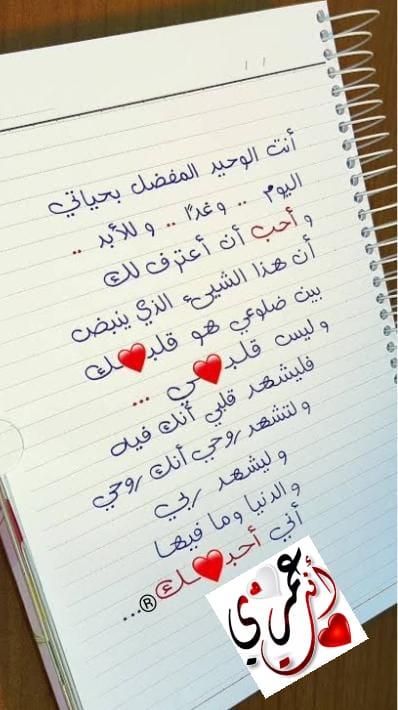 أنت الوحيد المفضل بحياتي
اليوم .. وغدًا .. وللأبد ..
و أحب أن أعترف لك
أن هذا الشيىء الذي ينبض
بين ضلوعي هو قلبـ❤ـك
وليس قلبـ❤ـي ...
فليشهد قلبي أنك فيه
ولتشهد روحي أنك روحي
وليشهد ربي
والدنيا وما فيها
أني أحبـ❤ـك®...
أنت عمري